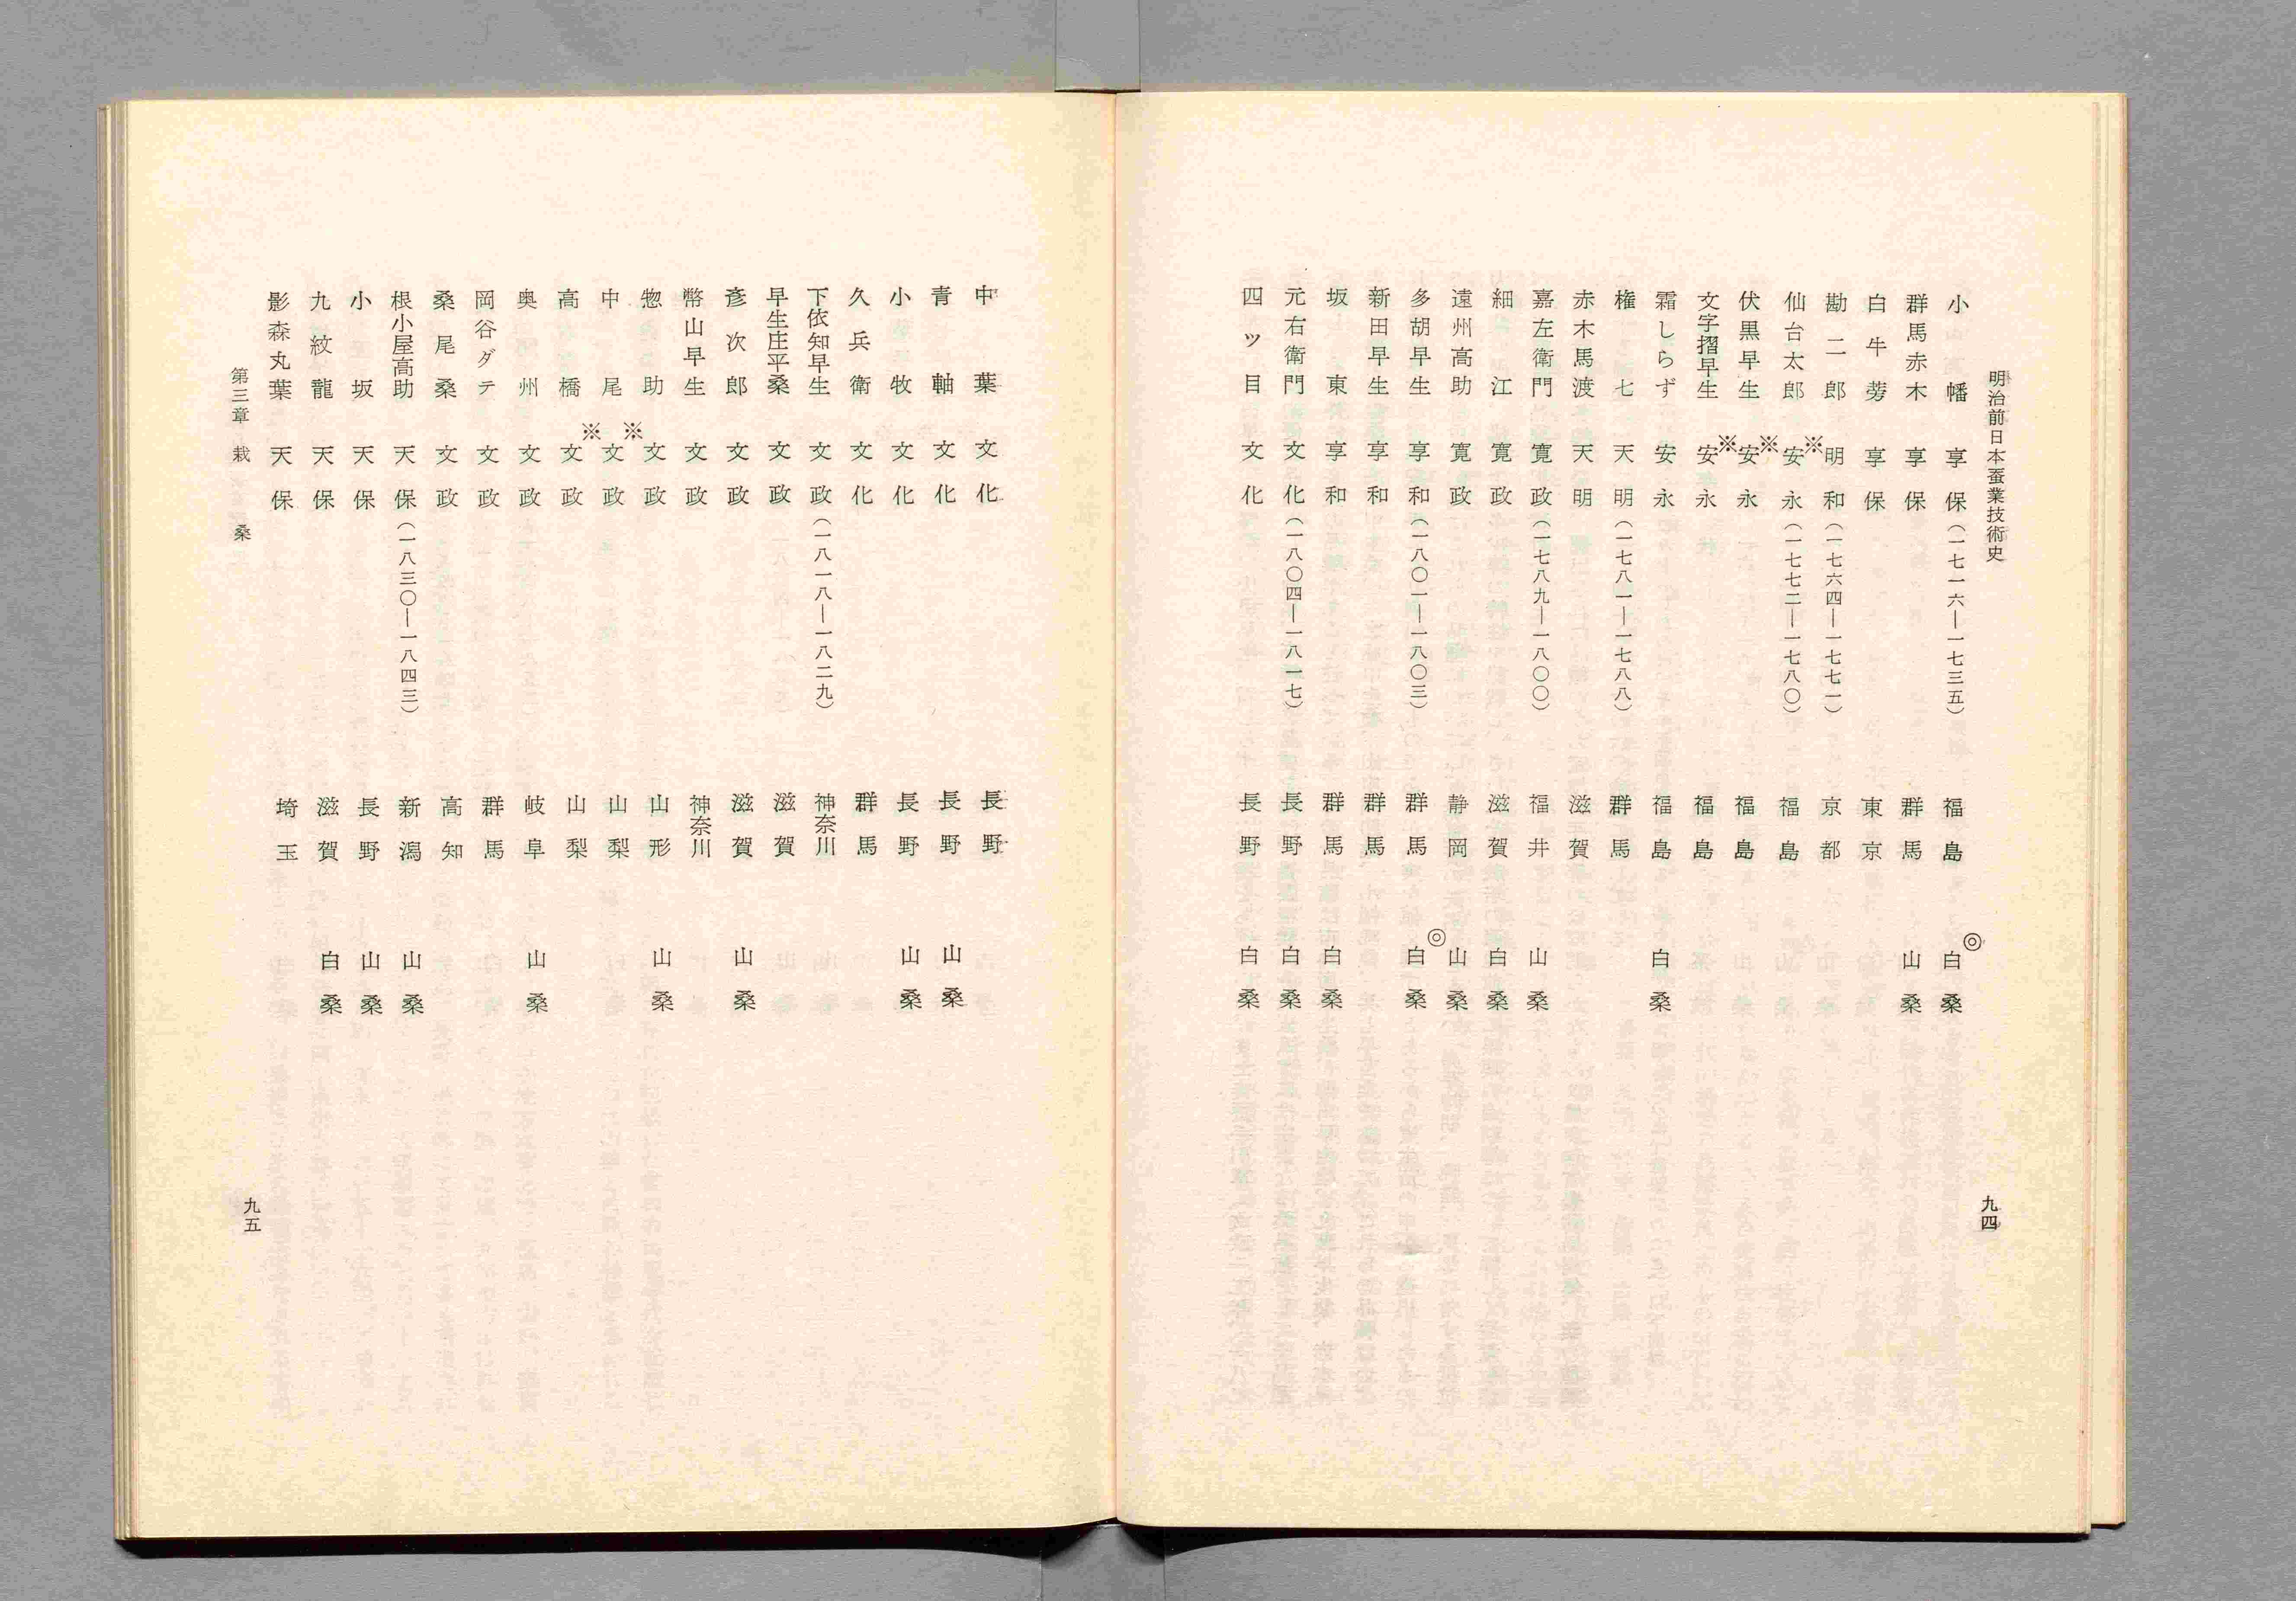 明治前日本蚕業技術史
小幡 享保(一七一六―一七三五) 福島 ◎白桑
群馬赤木 享保 群馬 山桑
白牛蒡 享保 東京
勘二郎 明和(一七六四―一七七一) 京都
仙台太郎 ※安永(一七七二―一七八〇) 福島
伏黒早生 ※安永 福島
文字摺早生 ※安永 福島
霜しらず 安永 福島 白桑
権七 天明(一七八一―一七八八) 群馬
赤木馬渡 天明 滋賀
嘉左衛門 寛政(一七八九―一八〇〇) 福井 山桑
細江 寛政 滋賀 白桑
遠州高助 寛政 静岡 山桑
多胡早生 享和(一八〇一―一八〇三) 群馬 ◎白桑
新田早生 享和 群馬
坂東 享和 群馬 白桑
元右衛門 文化(一八〇四―一八一七) 長野 白桑
四ツ目 文化 長野 白桑
九四
中葉 文化 長野
青軸 文化 長野 山桑
小牧 文化 長野 山桑
久兵衛 文化 群馬
下依知早生 文政(一八一八―一八二九) 神奈川
早生庄平桑 文政 滋賀
彦次郎 文政 滋賀 山桑
幣山早生 文政 神奈川
惣助 文政 山形 山桑
中尾 ※文政 山梨
高橋 ※文政 山梨
奥州 文政 岐阜 山桑
岡谷ダテ 文政 群馬
桑尾桑 文政 高知
根小屋高助 天保(一八三〇―一八四三) 新潟 山桑
小坂 天保 長野 山桑
九紋龍 天保 滋賀 白桑
影森丸葉 天保 埼玉
第三章 栽桑
九五